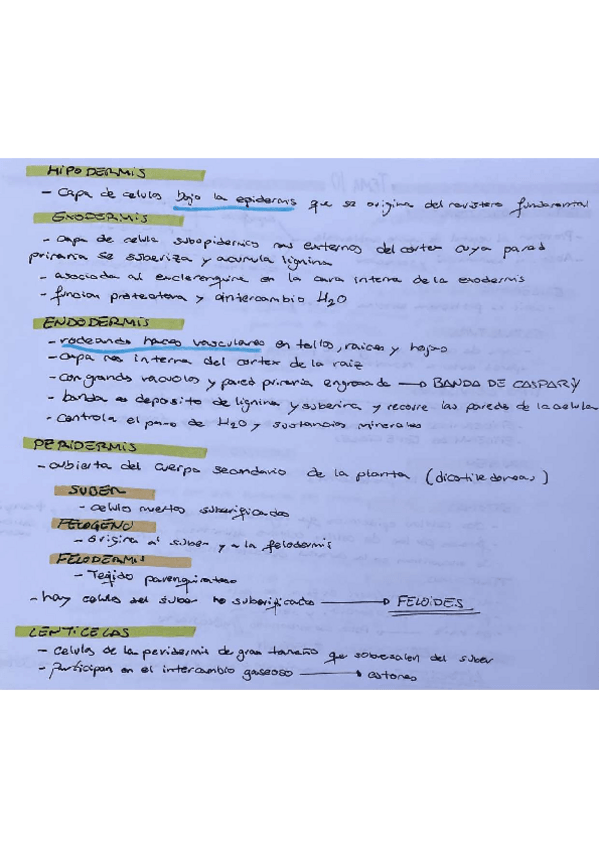 HIPODERMIS
- Capa de celulas bajo la epidermis que se origina del meristemo fundamental
EXODERMIS
- capa de celula subepidermica mas externas del cortex cuya pared
primaria se suberiza y acumula lignina
- asociada al esclerenquima en la cara interna de la exodermis
- funcion protectora y intercambio H₂O
ENDODERMIS
- rodeando haces vasculares en tallos, raices y hojas
- capa mas interna del cortex de la raiz
- con grandes vacuolas y pared primaria engrosada → BANDA DE CASPARY
- banda es deposito de lignina y suberina y recorre las paredes de la celula
- controla el paso de H₂O y sustancias minerales
PERIDERMIS
- cubierta del cuerpo secundario de la planta (dicotiledoneas)
SUBER
- celulas muertas suberificadas
FELOGENO
- origina al suber y a la felodermis
FELODERMIS
- Tejido parenquimatoso
- hay celulas del suber no suberificadas → FELOIDES
LENTICELAS
- celulas de la peridermis de gran tamaño que sobresalen del suber
- participan en el intercambio gaseoso → estomas